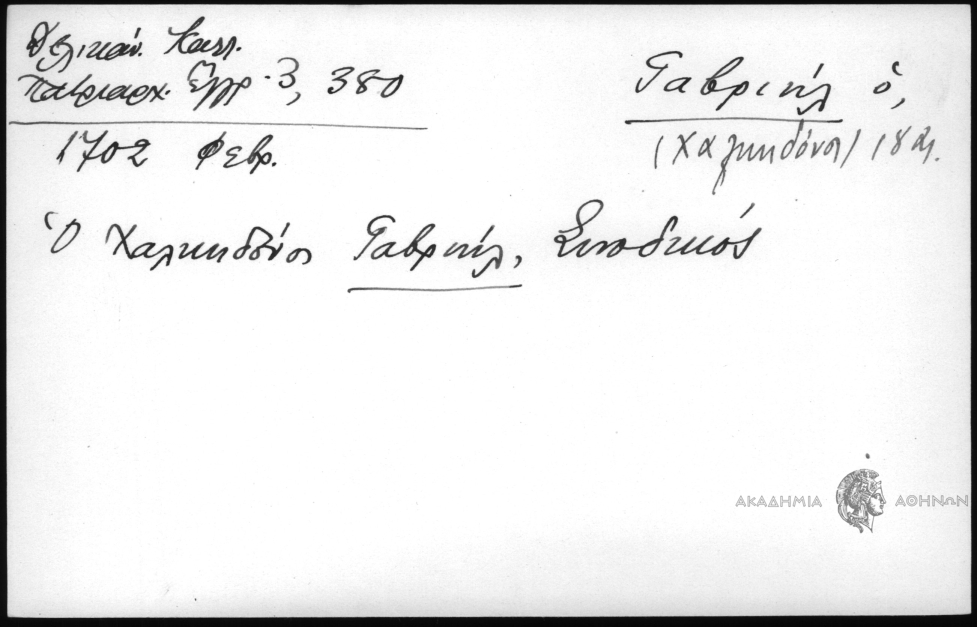 Δελικάν. Καλλ.
Πατριαρχ. Έγγρ. 3, 380
1702 Φεβρ.
Γαβριήλ ὁ,
(Χαλκηδόνος) 18 αι.
Ὁ Χαλκηδόνος Γαβριήλ, Συνοδικός
ΑΚΑΔΗΜΙΑ ΑΘΗΝΩΝ